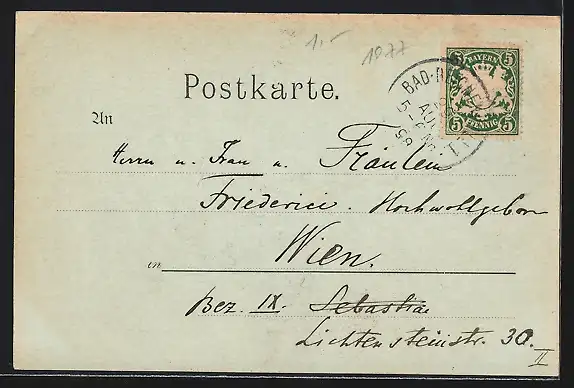 1.-
1977
BAYERN
5 PFENNIG 5
BAD-
AUG
5-6 NM
98
Postkarte.
An
Herrn u. Frau u. Fräulein
Friederici. Hochwollgeborn
in Wien.
Bez. IX. Sebastia
Lichtensteinstr. 30.
II